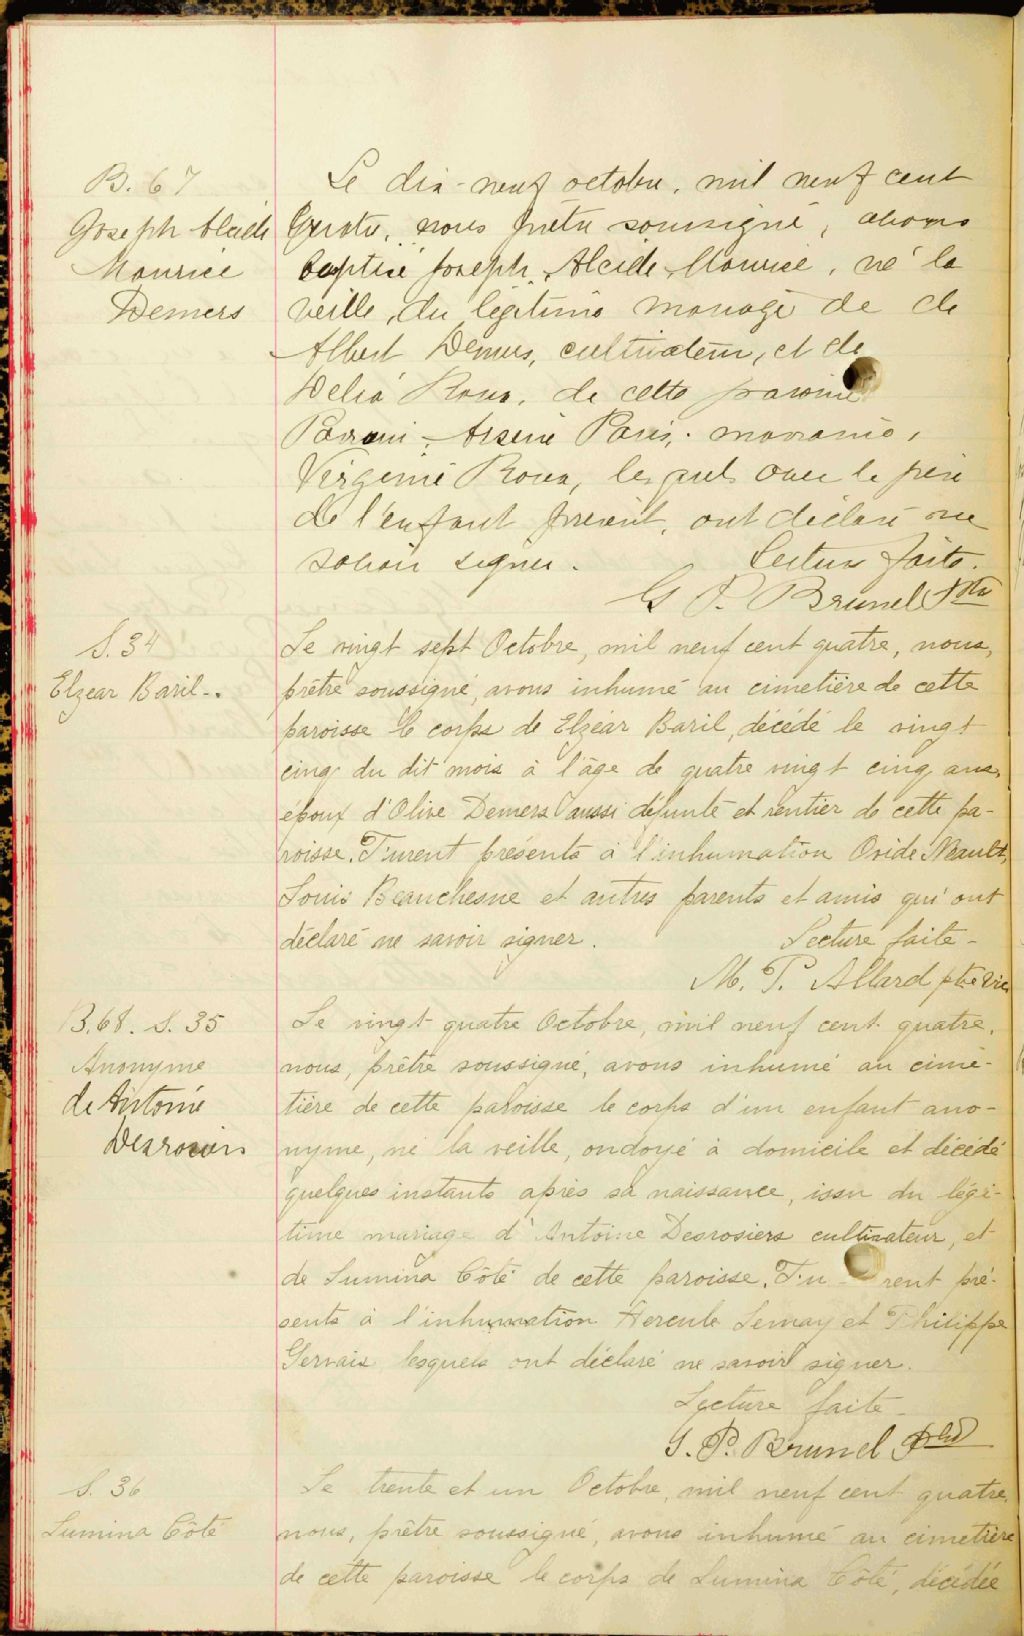 B. 67
Joseph Alcide
Maurice
Demers
Le dix-neuf octobre, mil neuf cent
quatre, nous prêtre soussigné, avons
baptisé Joseph Alcide Maurice, né la
veille, du légitime mariage de de
Albert Demers, cultivateur, et de
Delia Roux, de cette paroisse
Parrain, Arsene Paris, marraine,
Virginie Roux, lesquels avec le père
de l'enfant présent, ont déclaré ne
savoir signer. Lecture faite.
G P. Brunel Ptre
S. 34
Elzéar Baril-.
Le vingt sept Octobre, mil neuf cent quatre, nous,
prêtre soussigné, avons inhumé au cimetière de cette
paroisse le corps de Elzéar Baril, décédé le vingt
cinq du dit mois à l'âge de quatre vingt cinq ans,
époux d'Olive Demers aussi défunte et rentier de cette pa-
roisse. Furent présents à l'inhumation Ovide Neault,
Louis Beauchesne et autres parents et amis qui ont
déclaré ne savoir signer. Lecture faite-
M. P. Allard ptre Vic
B. 68. S. 35
Anonyme
de Antoine
Desrosiers
Le vingt-quatre Octobre, mil neuf cent quatre,
nous, prêtre soussigné, avons inhumé au cime-
tière de cette paroisse le corps d'un enfant ano-
nyme, né la veille, ondoyé à domicile et décédé
quelques instants après sa naissance, issu du légi-
time mariage d'Antoine Desrosiers cultivateur, et
de Lumina Côté de cette paroisse. Fu- rent pré-
sents à l'inhumation Hercule Lemay et Philippe
Gervais lesquels ont déclaré ne savoir signer.
Lecture faite-
G. P. Brunel Ptre
S. 36
Lumina Côté
Le trente et un Octobre, mil neuf cent quatre,
nous, prêtre soussigné, avons inhumé au cimetière
de cette paroisse le corps de Lumina Côté, décédée